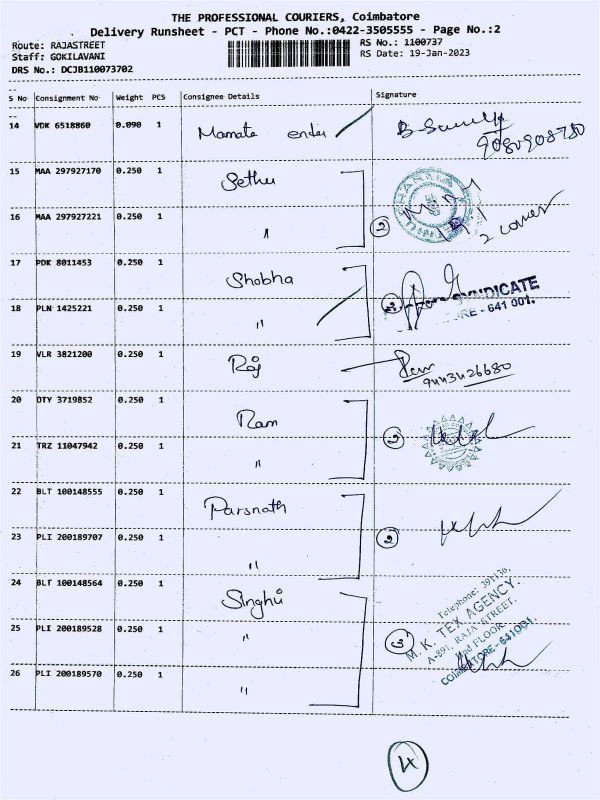 THE PROFESSIONAL COURIERS, Coimbatore
Delivery Runsheet - PCT - Phone No.:0422-3505555 - Page No.:2
Route: RAJASTREET
Staff: GOKILAVANI
DRS No.: DCJB110073702
RS No.: 1100737
RS Date: 19-Jan-2023
S No Consignment No Weight PCS Consignee Details Signature
14 VDK 6518860 0.090 1 Mamate
15 MAA 297927170 0.250 1 Sethu
16 MAA 297927221 0.250 1 " 2
17 PDK 8011453 0.250 1 Shobha
SYNDICATE
18 PLN 1425221 0.250 1 " 2
RE - 641 001.
19 VLR 3821200 0.250 1 Raj
9443426680
20 OTY 3719852 0.250 1 Ram
21 TRZ 11047942 0.250 1 " 2
22 BLT 100148555 0.250 1 Parsnath
23 PLI 200189707 0.250 1 " 2
24 BLT 100148564 0.250 1 Singhu
Telephone: 391136,
25 PLI 200189528 0.250 1 " 3
M. K. TEX AGENCY.
A-891, RAJA STREET.
IInd FLOOR,
COIMBATORE - 641001.
26 PLI 200189570 0.250 1 "